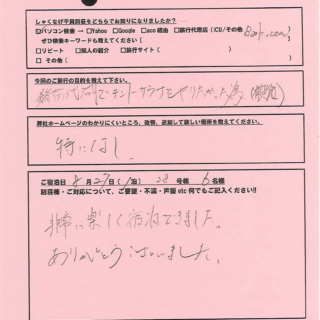 しゃくなげ平貸別荘をどちらでお知りになりましたか?
☑パソコン検索 → □Yahoo □Google □aco 経由 □旅行代理店 (ICU/その他 Book.com)
ぜひ検索キーワードも教えてください( )
□リピート □知人の紹介 □旅行サイト( )
□ その他( )
今回のご旅行の目的を教えて下さい。
猪苗代湖でテントサウナをやりたかった為。
弊社ホームページのわかりにくいところ、改善、追加して欲しい場所を教えてください。
特になし。
ご宿泊日 8月27日(1泊) 28号棟 6名様
別荘棟・ご対応について、ご要望・不満・芦留 etc 何でもご記入ください!!
非常に楽しく宿泊できました。
ありがとうございました。